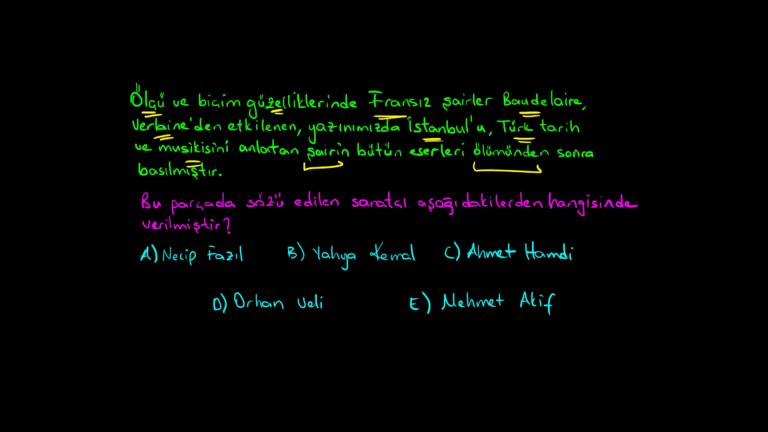 Ölçü ve biçim güzelliklerinde Fransız şairler Baudelaire,
Verlaine'den etkilenen, yazınımızda İstanbul'u, Türk tarih
ve musikisini anlatan şairin bütün eserleri ölümünden sonra
basılmıştır.
Bu parçada sözü edilen sanatçı aşağıdakilerden hangisinde
verilmiştir?
A) Necip Fazıl B) Yahya Kemal C) Ahmet Hamdi
D) Orhan Veli E) Mehmet Akif